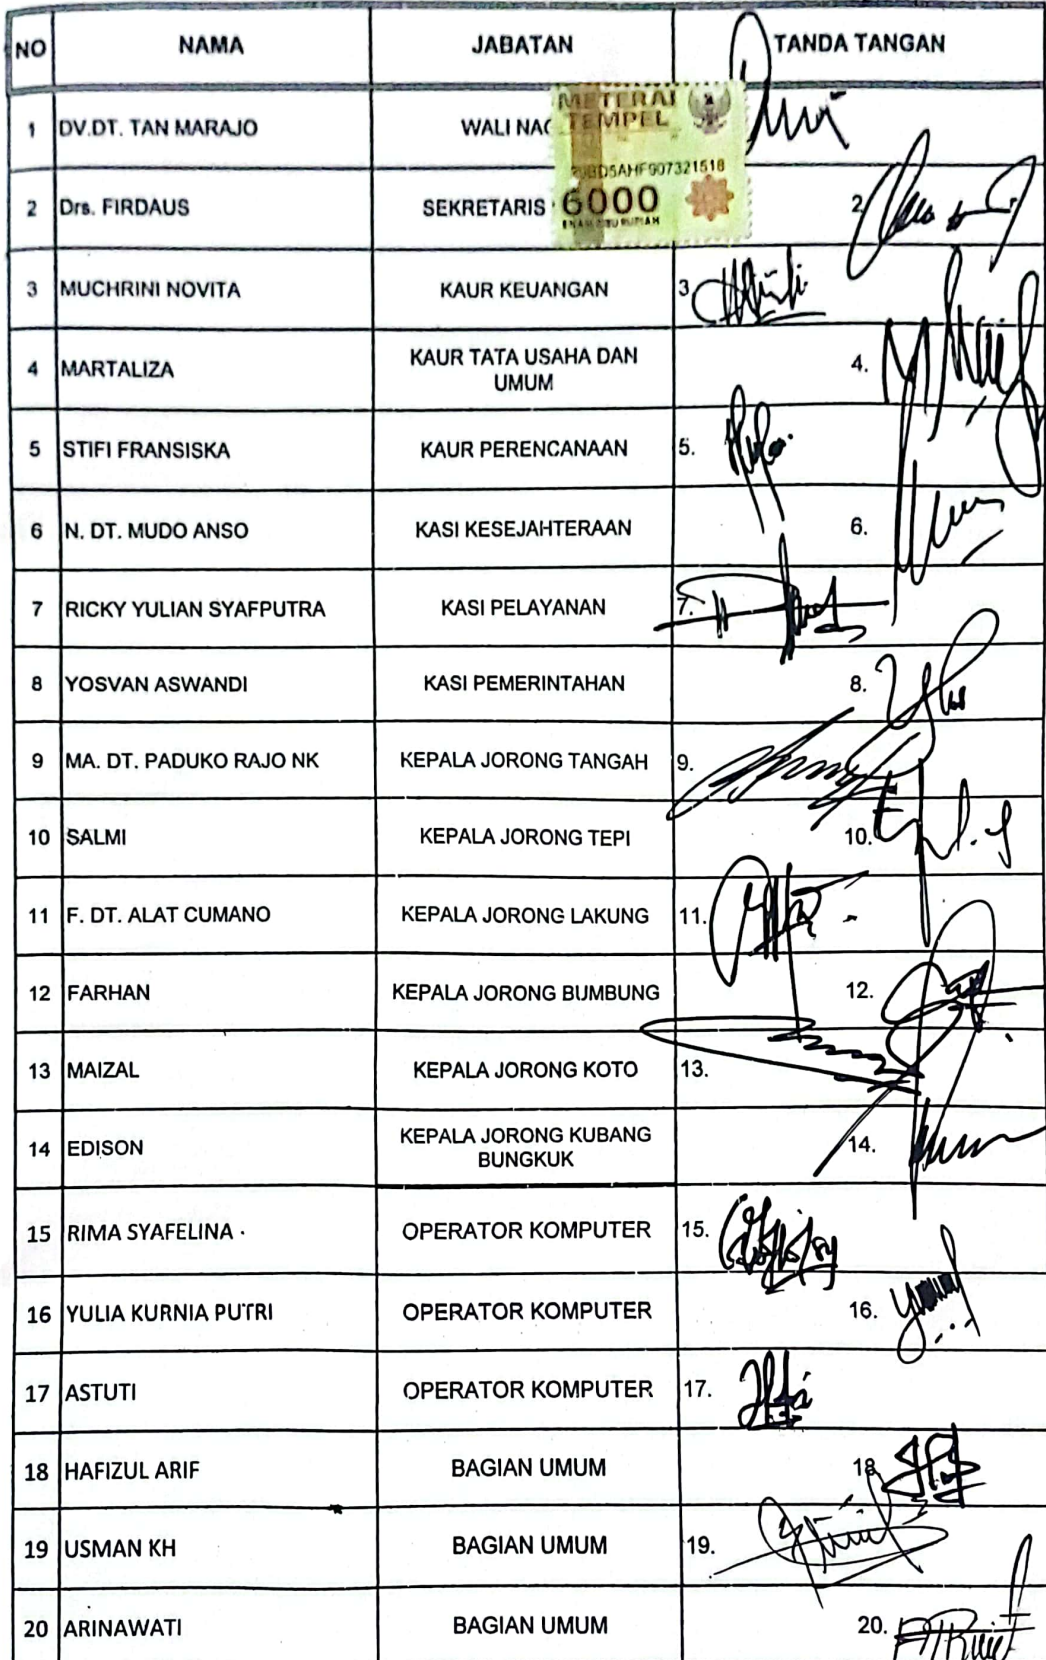 NO NAMA JABATAN TANDA TANGAN
1 DV.DT. TAN MARAJO WALI NAG
METERAI
TEMPEL
BD5AHF907321518
6000
ENAM RIBU RUPIAH
2 Drs. FIRDAUS SEKRETARIS 2
3 MUCHRINI NOVITA KAUR KEUANGAN 3
4 MARTALIZA KAUR TATA USAHA DAN UMUM 4.
5 STIFI FRANSISKA KAUR PERENCANAAN 5.
6 N. DT. MUDO ANSO KASI KESEJAHTERAAN 6.
7 RICKY YULIAN SYAFPUTRA KASI PELAYANAN 7.
8 YOSVAN ASWANDI KASI PEMERINTAHAN 8.
9 MA. DT. PADUKO RAJO NK KEPALA JORONG TANGAH 9.
10 SALMI KEPALA JORONG TEPI 10.
11 F. DT. ALAT CUMANO KEPALA JORONG LAKUNG 11.
12 FARHAN KEPALA JORONG BUMBUNG 12.
13 MAIZAL KEPALA JORONG KOTO 13.
14 EDISON KEPALA JORONG KUBANG BUNGKUK 14.
15 RIMA SYAFELINA OPERATOR KOMPUTER 15.
16 YULIA KURNIA PUTRI OPERATOR KOMPUTER 16.
17 ASTUTI OPERATOR KOMPUTER 17.
18 HAFIZUL ARIF BAGIAN UMUM 18
19 USMAN KH BAGIAN UMUM 19.
20 ARINAWATI BAGIAN UMUM 20.